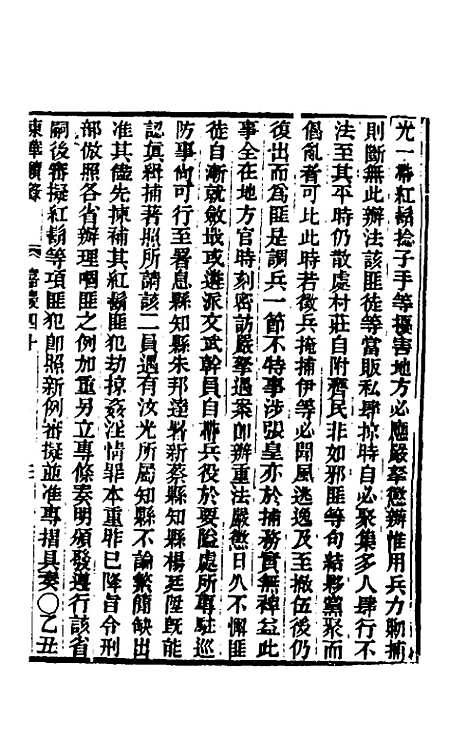 光一帶紅鬍捻子手等擾害地方必應嚴拏懲辦惟用兵力剿捕
則斷無此辦法該匪徒等當販私肆掠時自必聚集多人肆行不
法至其平時仍散處村莊自附齊民非如邪匪等句結夥黨聚而
倡亂者可比此時若徵兵掩捕伊等必聞風逃逸及至撤伍後仍
復出而爲匪是調兵一節不特事涉張皇亦於捕務實無裨益此
事全在地方官時刻密訪嚴拏遇案卽辦重法嚴懲日久不懈匪
徒自漸就斂戢或遴派文武幹員自帶兵役於要隘處所專駐巡
防事尙可行至署息縣知縣朱邦 署新蔡縣知縣楊廷陞旣能
認眞緝捕著照所請該二員遇有汝光所屬知縣不論繁簡缺出
准其儘先揀補其紅鬍匪犯劫掠姦淫情罪本重昨已降旨令刑
部倣照各省辦理嘓匪之例加重另立專條奏明頒發遵行該省
嗣後審擬紅鬍等項匪犯卽照新例審擬並准專摺具奏○乙丑
東華續錄 嘉慶四十